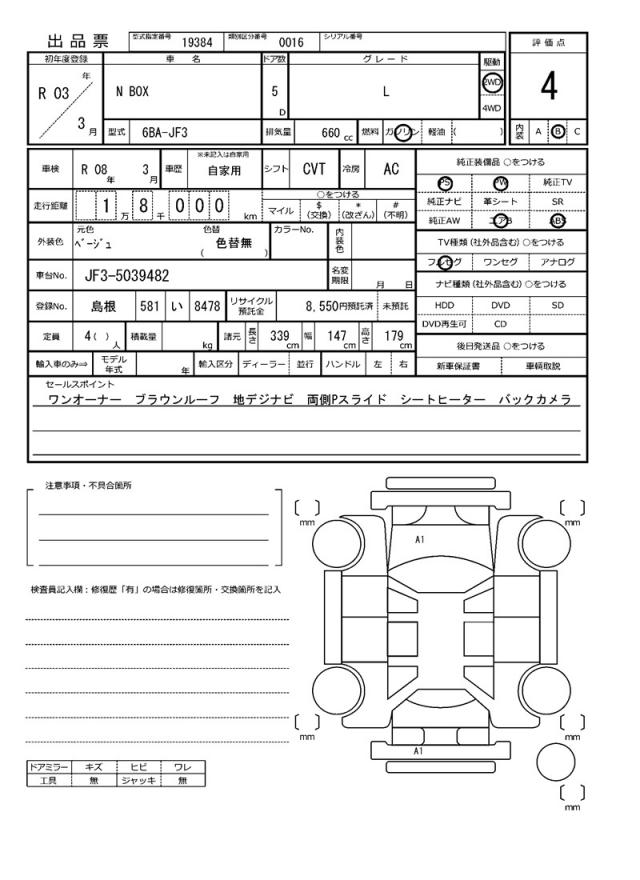 出品票 型式指定番号 19384 類別区分番号 0016 シリアル番号
初年度登録 車名 ドア数 グレード 駆動 評価点
R 03 年 N BOX 5 D L 2WD 4WD 4
3 月 型式 6BA-JF3 排気量 660 cc 燃料 ガソリン 軽油 ( ) 内装 A B C
車検 R 08 年 3 月 車歴 ※未記入は自家用 自家用 シフト CVT 冷房 AC 純正装備品 ○をつける
PS PW 純正TV
走行距離 1 万 8 千 0 0 0 km ○をつける 純正ナビ 革シート SR
マイル $ (交換) * (改ざん) # (不明) 純正AW エアB ABS
外装色 元色 ベージュ 色替 ( 色替無 ) カラーNo. 内装色 TV種類 (社外品含む) ○をつける
フルセグ ワンセグ アナログ
車台No. JF3-5039482 名変期限 月 日 ナビ種類 (社外品含む) ○をつける
登録No. 島根 581 い 8478 リサイクル預託金 8,550円預託済 未預託 HDD DVD SD
DVD再生可 CD
定員 4 ( ) 人 積載量 kg 諸元 長さ 339 cm 幅 147 cm 高さ 179 cm 後日発送品 ○をつける
輸入車のみ⇒ モデル年式 年 輸入区分 ディーラー 並行 ハンドル 左 右 新車保証書 車輌取説
セールスポイント
ワンオーナー ブラウンルーフ 地デジナビ 両側Pスライド シートヒーター バックカメラ
注意事項・不具合箇所
mm mm
A1
検査員記入欄：修復歴「有」の場合は修復箇所・交換箇所を記入
mm mm
A1
ドアミラー キズ ヒビ ワレ
工具 無 ジャッキ 無
mm